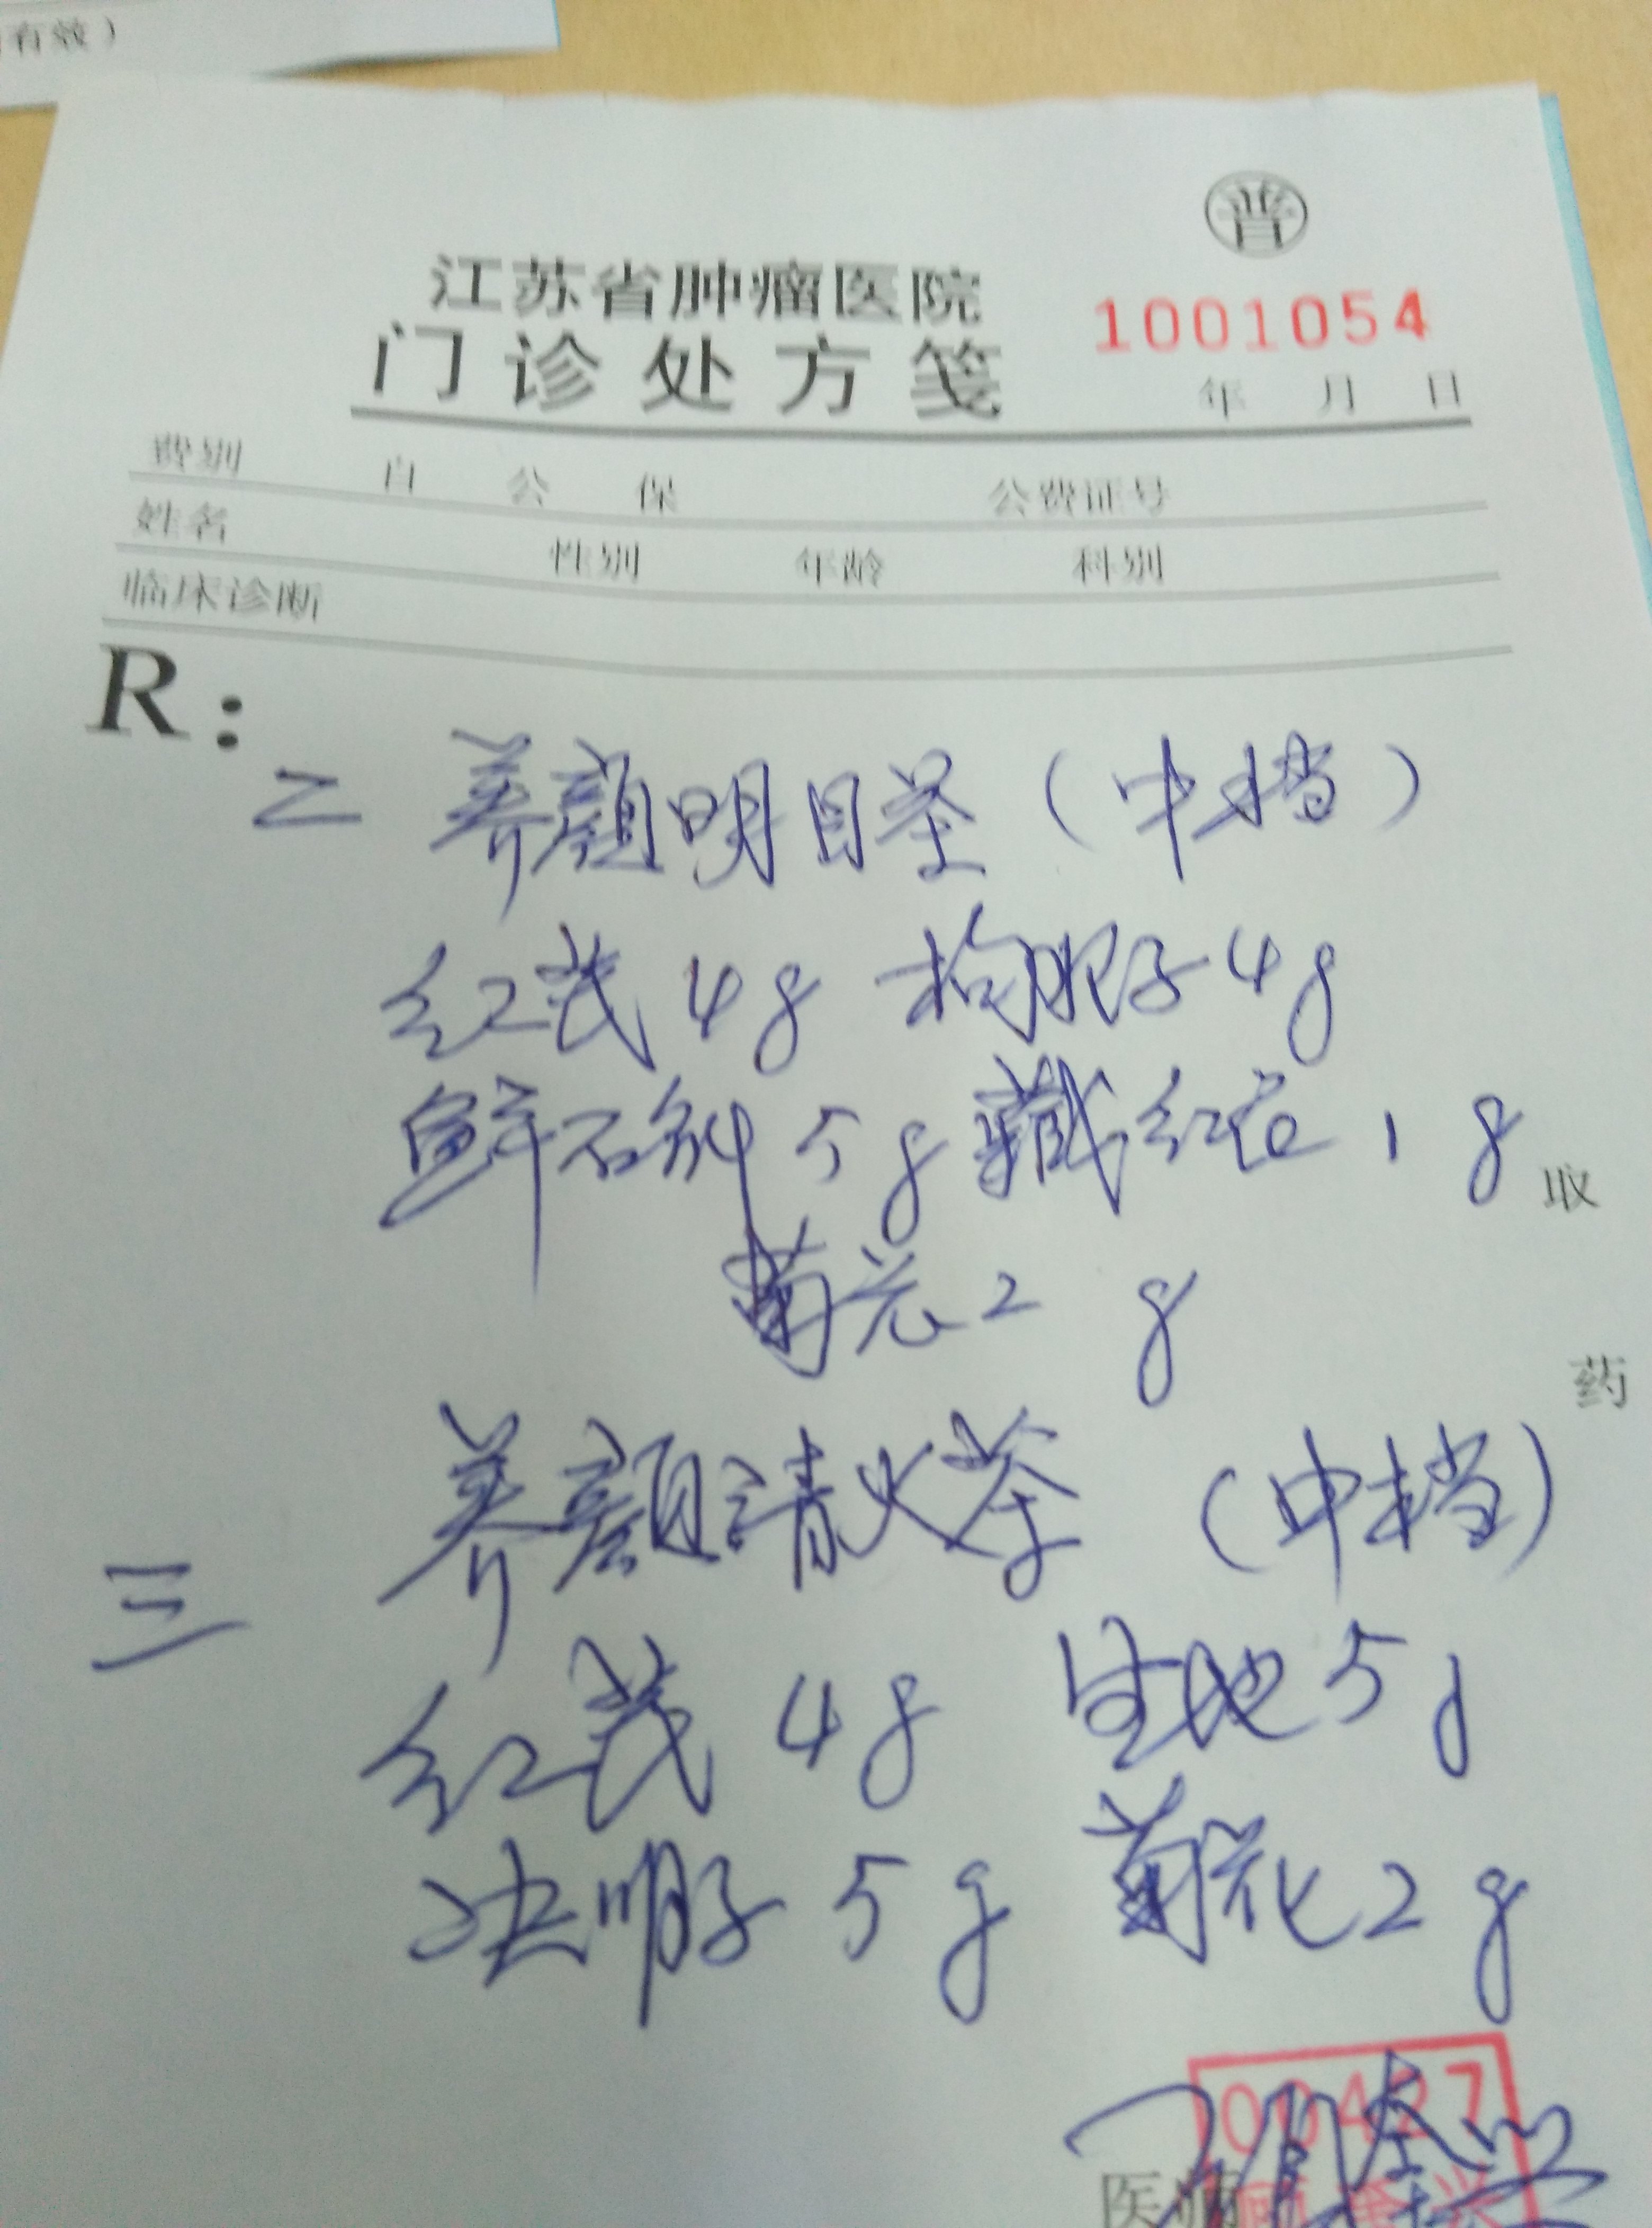 有效）
普
江苏省肿瘤医院
1001054
门诊处方笺
年 月 日
费别 自 公 保 公费证号
姓名 性别 年龄 科别
临床诊断
R：
二 养颜明目茶（中档）
红芪4g 枸杞子4g
鲜石斛5g 藏红花1g
取
菊花2g
药
三 养颜清火茶（中档）
红芪4g 生地5g
决明子5g 菊花2g
00427
医师